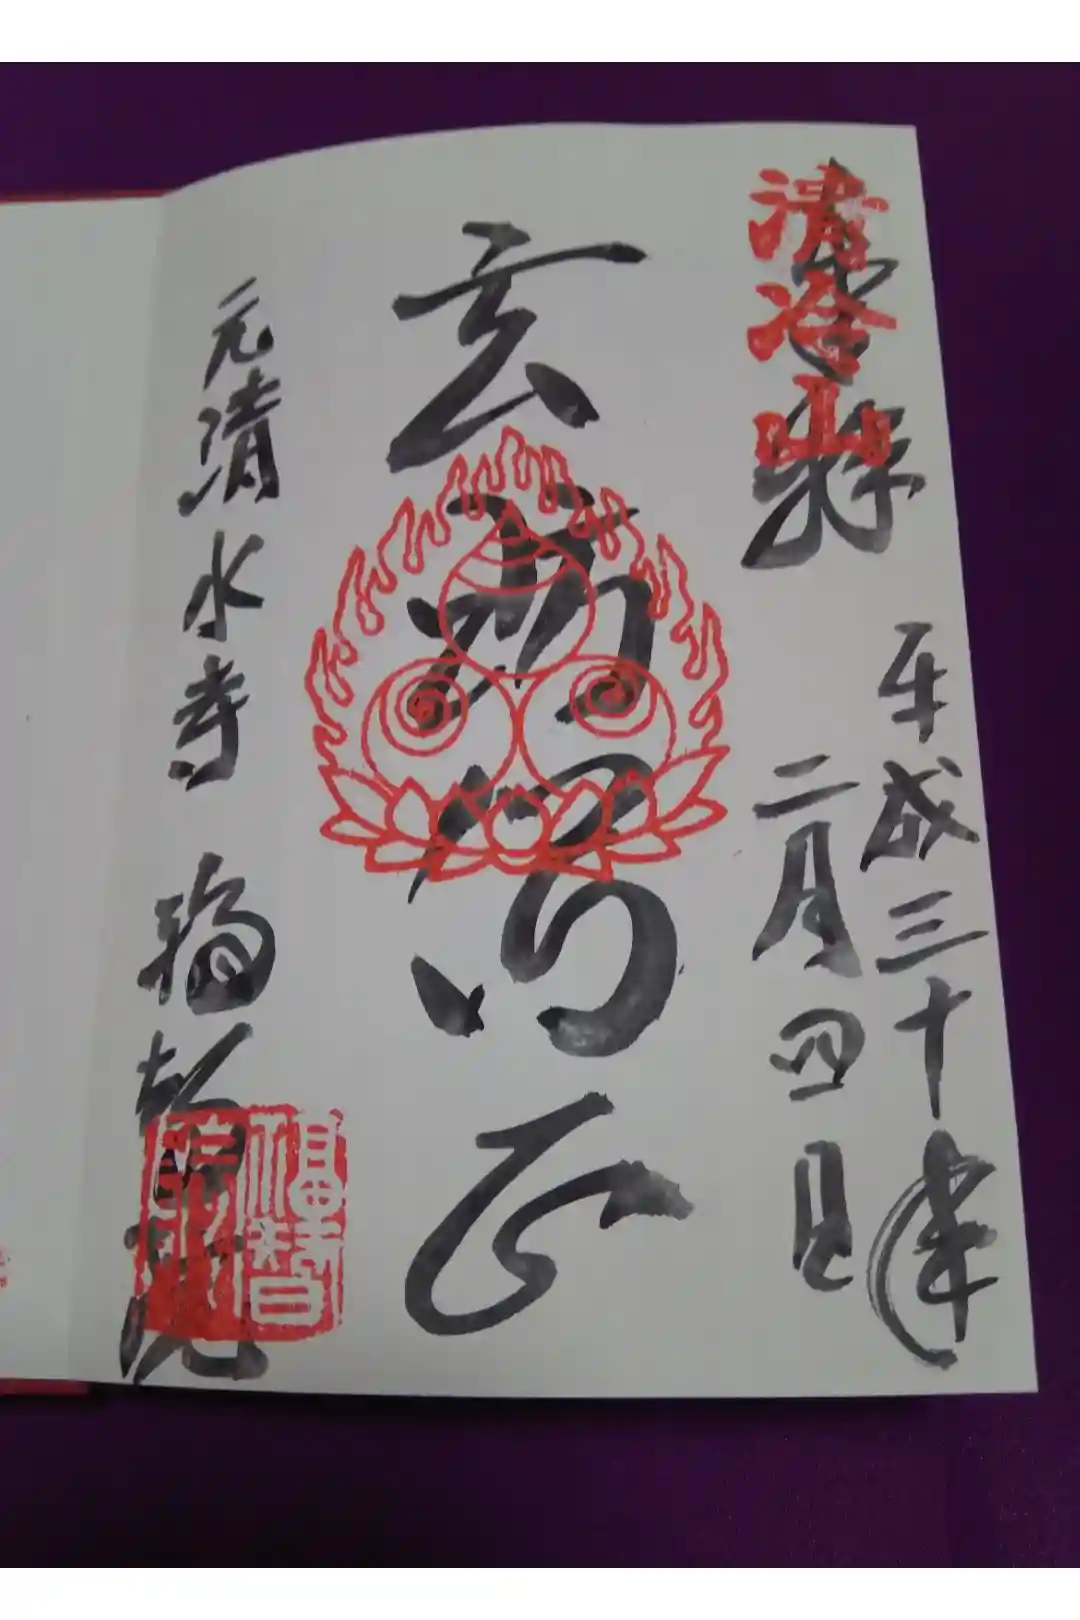 平成三十年
二月四日
奉拝
清冷山
玄昉僧正
元清水寺 福智院
福智院